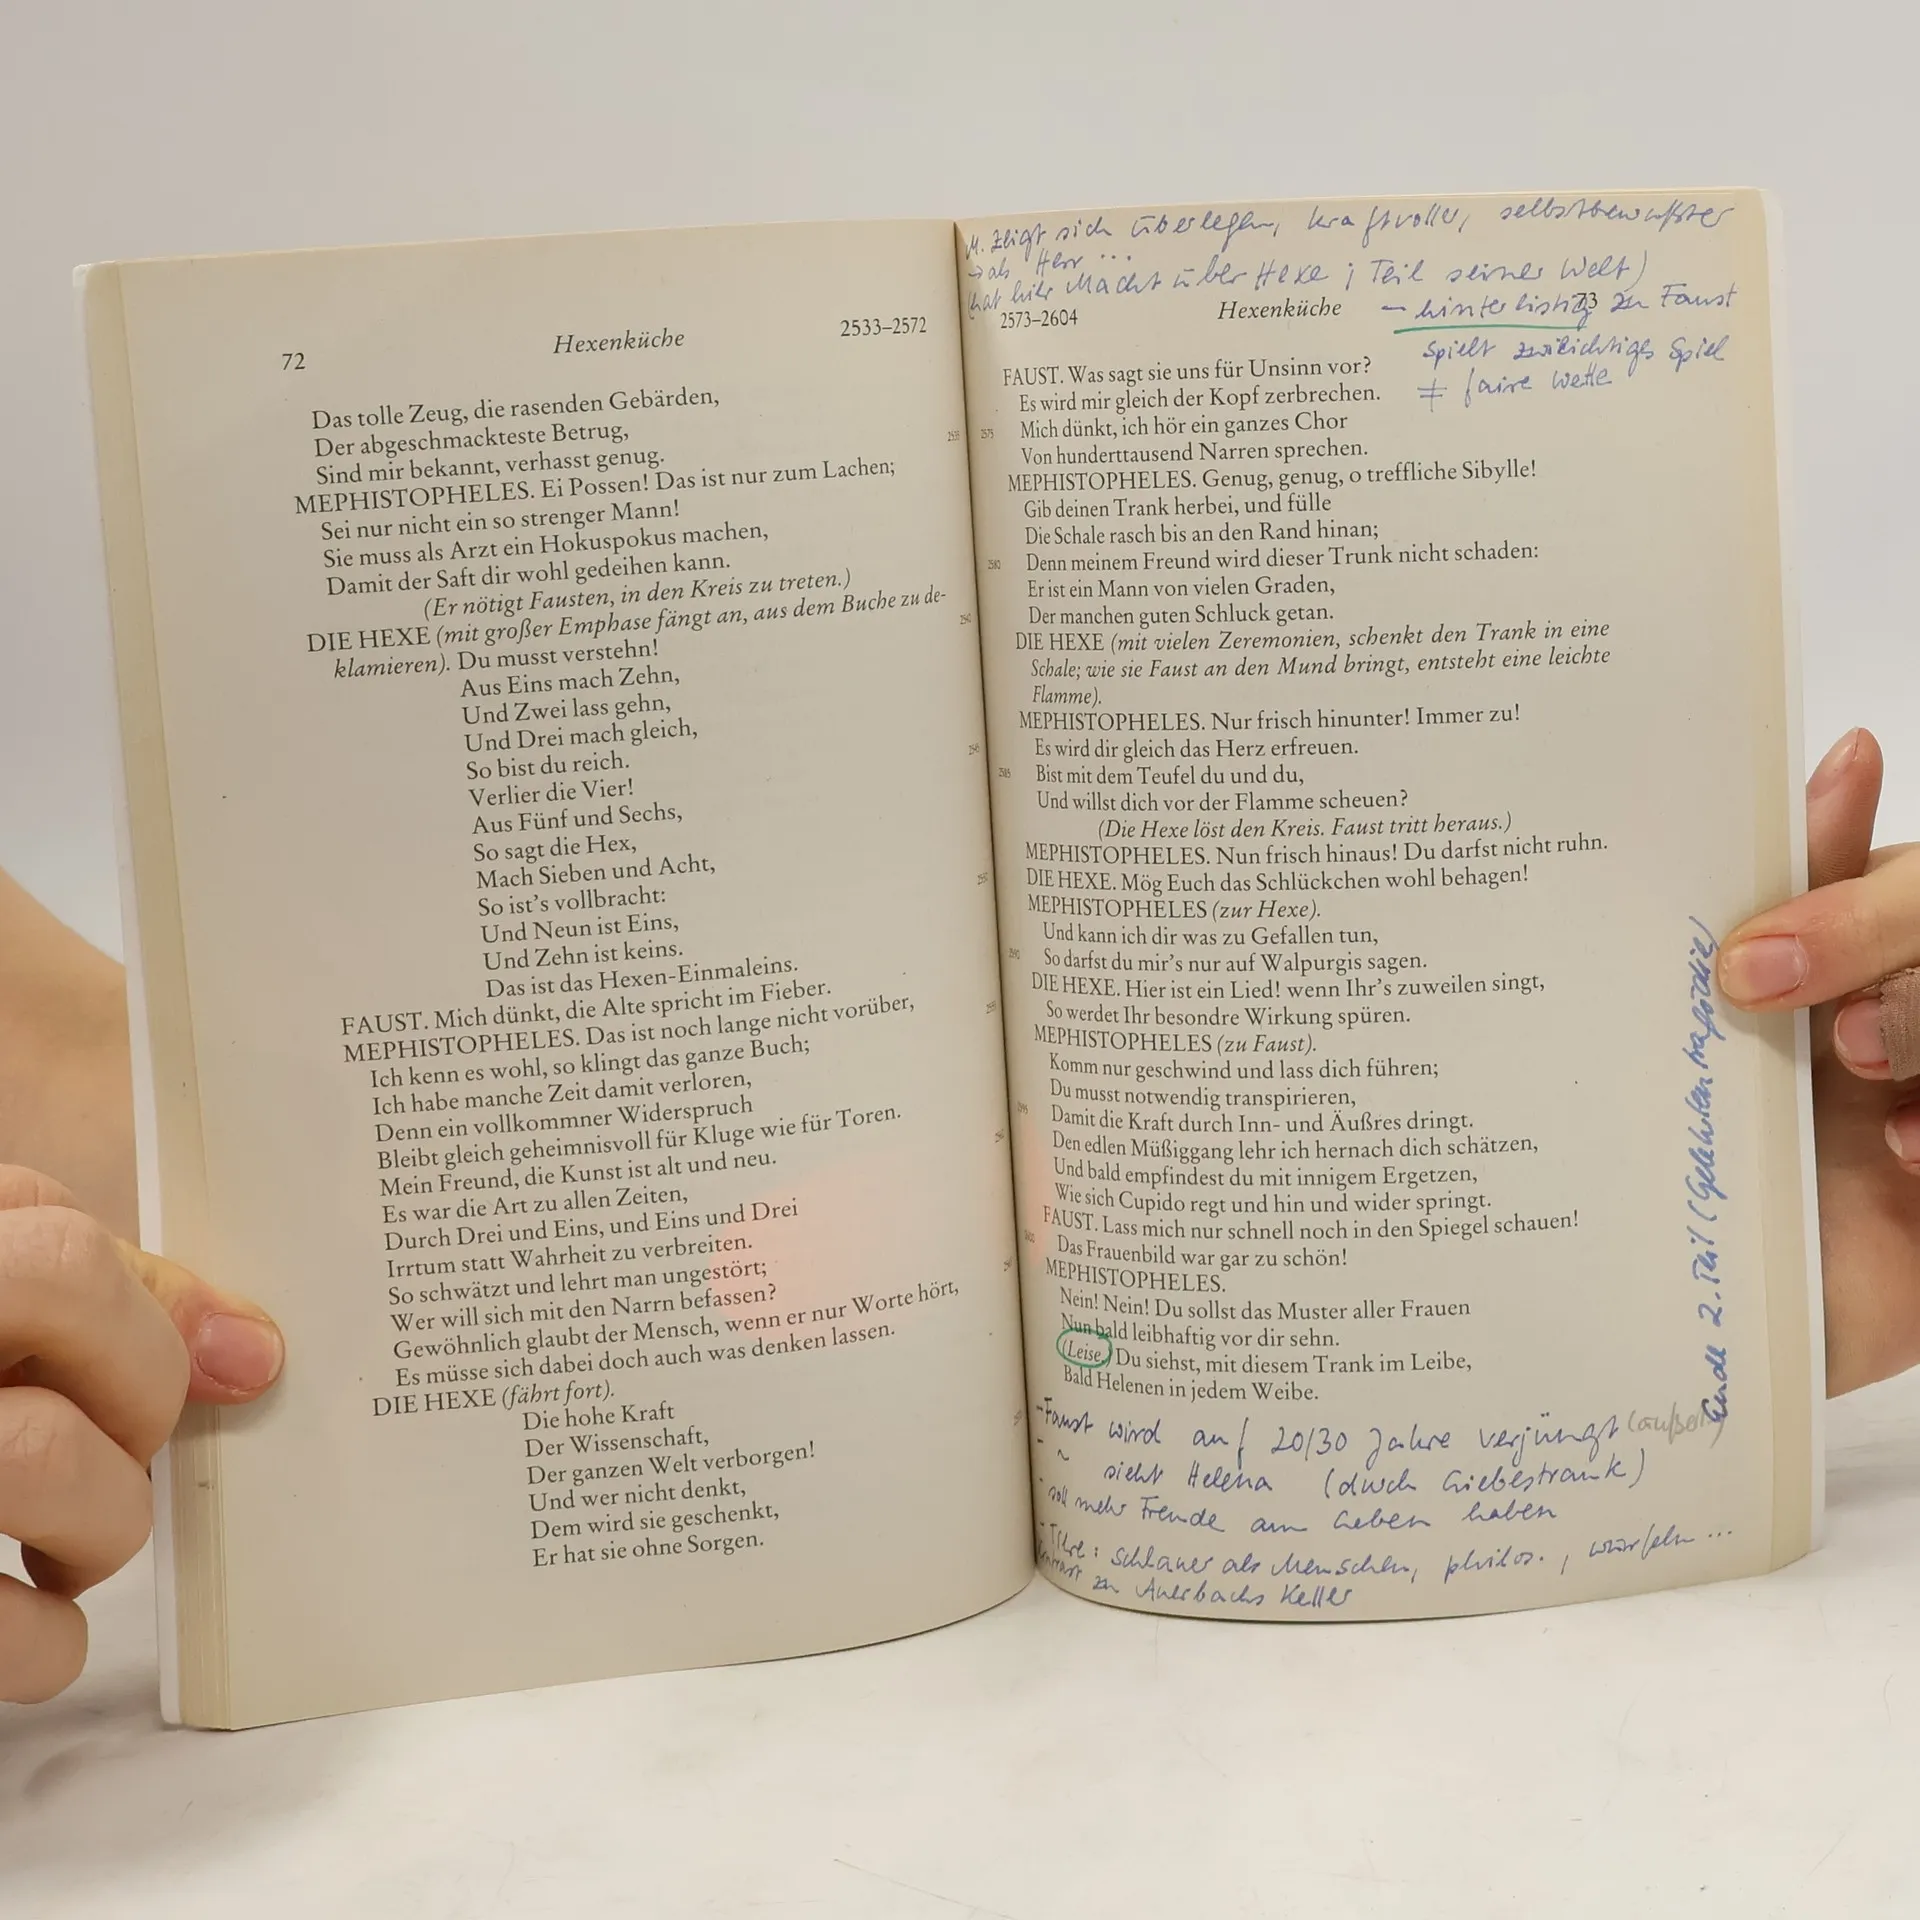 72 Hexenküche 2533–2572
Das tolle Zeug, die rasenden Gebärden,
Der abgeschmackteste Betrug,
Sind mir bekannt, verhasst genug.
MEPHISTOPHELES. Ei Possen! Das ist nur zum Lachen;
Sei nur nicht ein so strenger Mann!
Sie muss als Arzt ein Hokuspokus machen,
Damit der Saft dir wohl gedeihen kann.
(Er nötigt Fausten, in den Kreis zu treten.)
DIE HEXE (mit großer Emphase fängt an, aus dem Buche zu de-
klamieren). Du musst verstehn!
Aus Eins mach Zehn,
Und Zwei lass gehn,
Und Drei mach gleich,
So bist du reich.
Verlier die Vier!
Aus Fünf und Sechs,
So sagt die Hex,
Mach Sieben und Acht,
So ist's vollbracht:
Und Neun ist Eins,
Und Zehn ist keins.
Das ist das Hexen-Einmaleins.
FAUST. Mich dünkt, die Alte spricht im Fieber.
MEPHISTOPHELES. Das ist noch lange nicht vorüber,
Ich kenn es wohl, so klingt das ganze Buch;
Ich habe manche Zeit damit verloren,
Denn ein vollkommner Widerspruch
Bleibt gleich geheimnisvoll für Kluge wie für Toren.
Mein Freund, die Kunst ist alt und neu.
Es war die Art zu allen Zeiten,
Durch Drei und Eins, und Eins und Drei
Irrtum statt Wahrheit zu verbreiten.
So schwätzt und lehrt man ungestört;
Wer will sich mit den Narrn befassen?
Gewöhnlich glaubt der Mensch, wenn er nur Worte hört,
Es müsse sich dabei doch auch was denken lassen.
DIE HEXE (fährt fort).
Die hohe Kraft
Der Wissenschaft,
Der ganzen Welt verborgen!
Und wer nicht denkt,
Dem wird sie geschenkt,
Er hat sie ohne Sorgen.
M. zeigt sich überlegen, kraftvoller, selbstbewußter
→ als Herr ...
(hat hier Macht über Hexe ; Teil seiner Welt)
2573–2604 Hexenküche 73
– hinterlistig zu Faust
spielt zwielichtiges Spiel
≠ faire Wette
FAUST. Was sagt sie uns für Unsinn vor?
Es wird mir gleich der Kopf zerbrechen.
2575 Mich dünkt, ich hör ein ganzes Chor
Von hunderttausend Narren sprechen.
MEPHISTOPHELES. Genug, genug, o treffliche Sibylle!
Gib deinen Trank herbei, und fülle
Die Schale rasch bis an den Rand hinan;
2580 Denn meinem Freund wird dieser Trunk nicht schaden:
Er ist ein Mann von vielen Graden,
Der manchen guten Schluck getan.
DIE HEXE (mit vielen Zeremonien, schenkt den Trank in eine
Schale; wie sie Faust an den Mund bringt, entsteht eine leichte
Flamme).
MEPHISTOPHELES. Nur frisch hinunter! Immer zu!
Es wird dir gleich das Herz erfreuen.
2585 Bist mit dem Teufel du und du,
Und willst dich vor der Flamme scheuen?
(Die Hexe löst den Kreis. Faust tritt heraus.)
MEPHISTOPHELES. Nun frisch hinaus! Du darfst nicht ruhn.
DIE HEXE. Mög Euch das Schlückchen wohl behagen!
MEPHISTOPHELES (zur Hexe).
Und kann ich dir was zu Gefallen tun,
2590 So darfst du mir's nur auf Walpurgis sagen.
DIE HEXE. Hier ist ein Lied! wenn Ihr's zuweilen singt,
So werdet Ihr besondre Wirkung spüren.
MEPHISTOPHELES (zu Faust).
Komm nur geschwind und lass dich führen;
Du musst notwendig transpirieren,
2595 Damit die Kraft durch Inn- und Äußres dringt.
Den edlen Müßiggang lehr ich hernach dich schätzen,
Und bald empfindest du mit innigem Ergetzen,
Wie sich Cupido regt und hin und wider springt.
FAUST. Lass mich nur schnell noch in den Spiegel schauen!
2600 Das Frauenbild war gar zu schön!
MEPHISTOPHELES.
Nein! Nein! Du sollst das Muster aller Frauen
Nun bald leibhaftig vor dir sehn.
(Leise.) Du siehst, mit diesem Trank im Leibe,
Bald Helenen in jedem Weibe.
- Faust wird auf 20/30 Jahre verjüngt
- ~ sieht Helena (durch Liebestrank)
- soll mehr Freude am Leben haben
- Tiere: schlauer als Menschen, philos., würfeln ...
Kontrast zu Auerbachs Keller
Ende 2. Teil (Gelehrtentragödie)